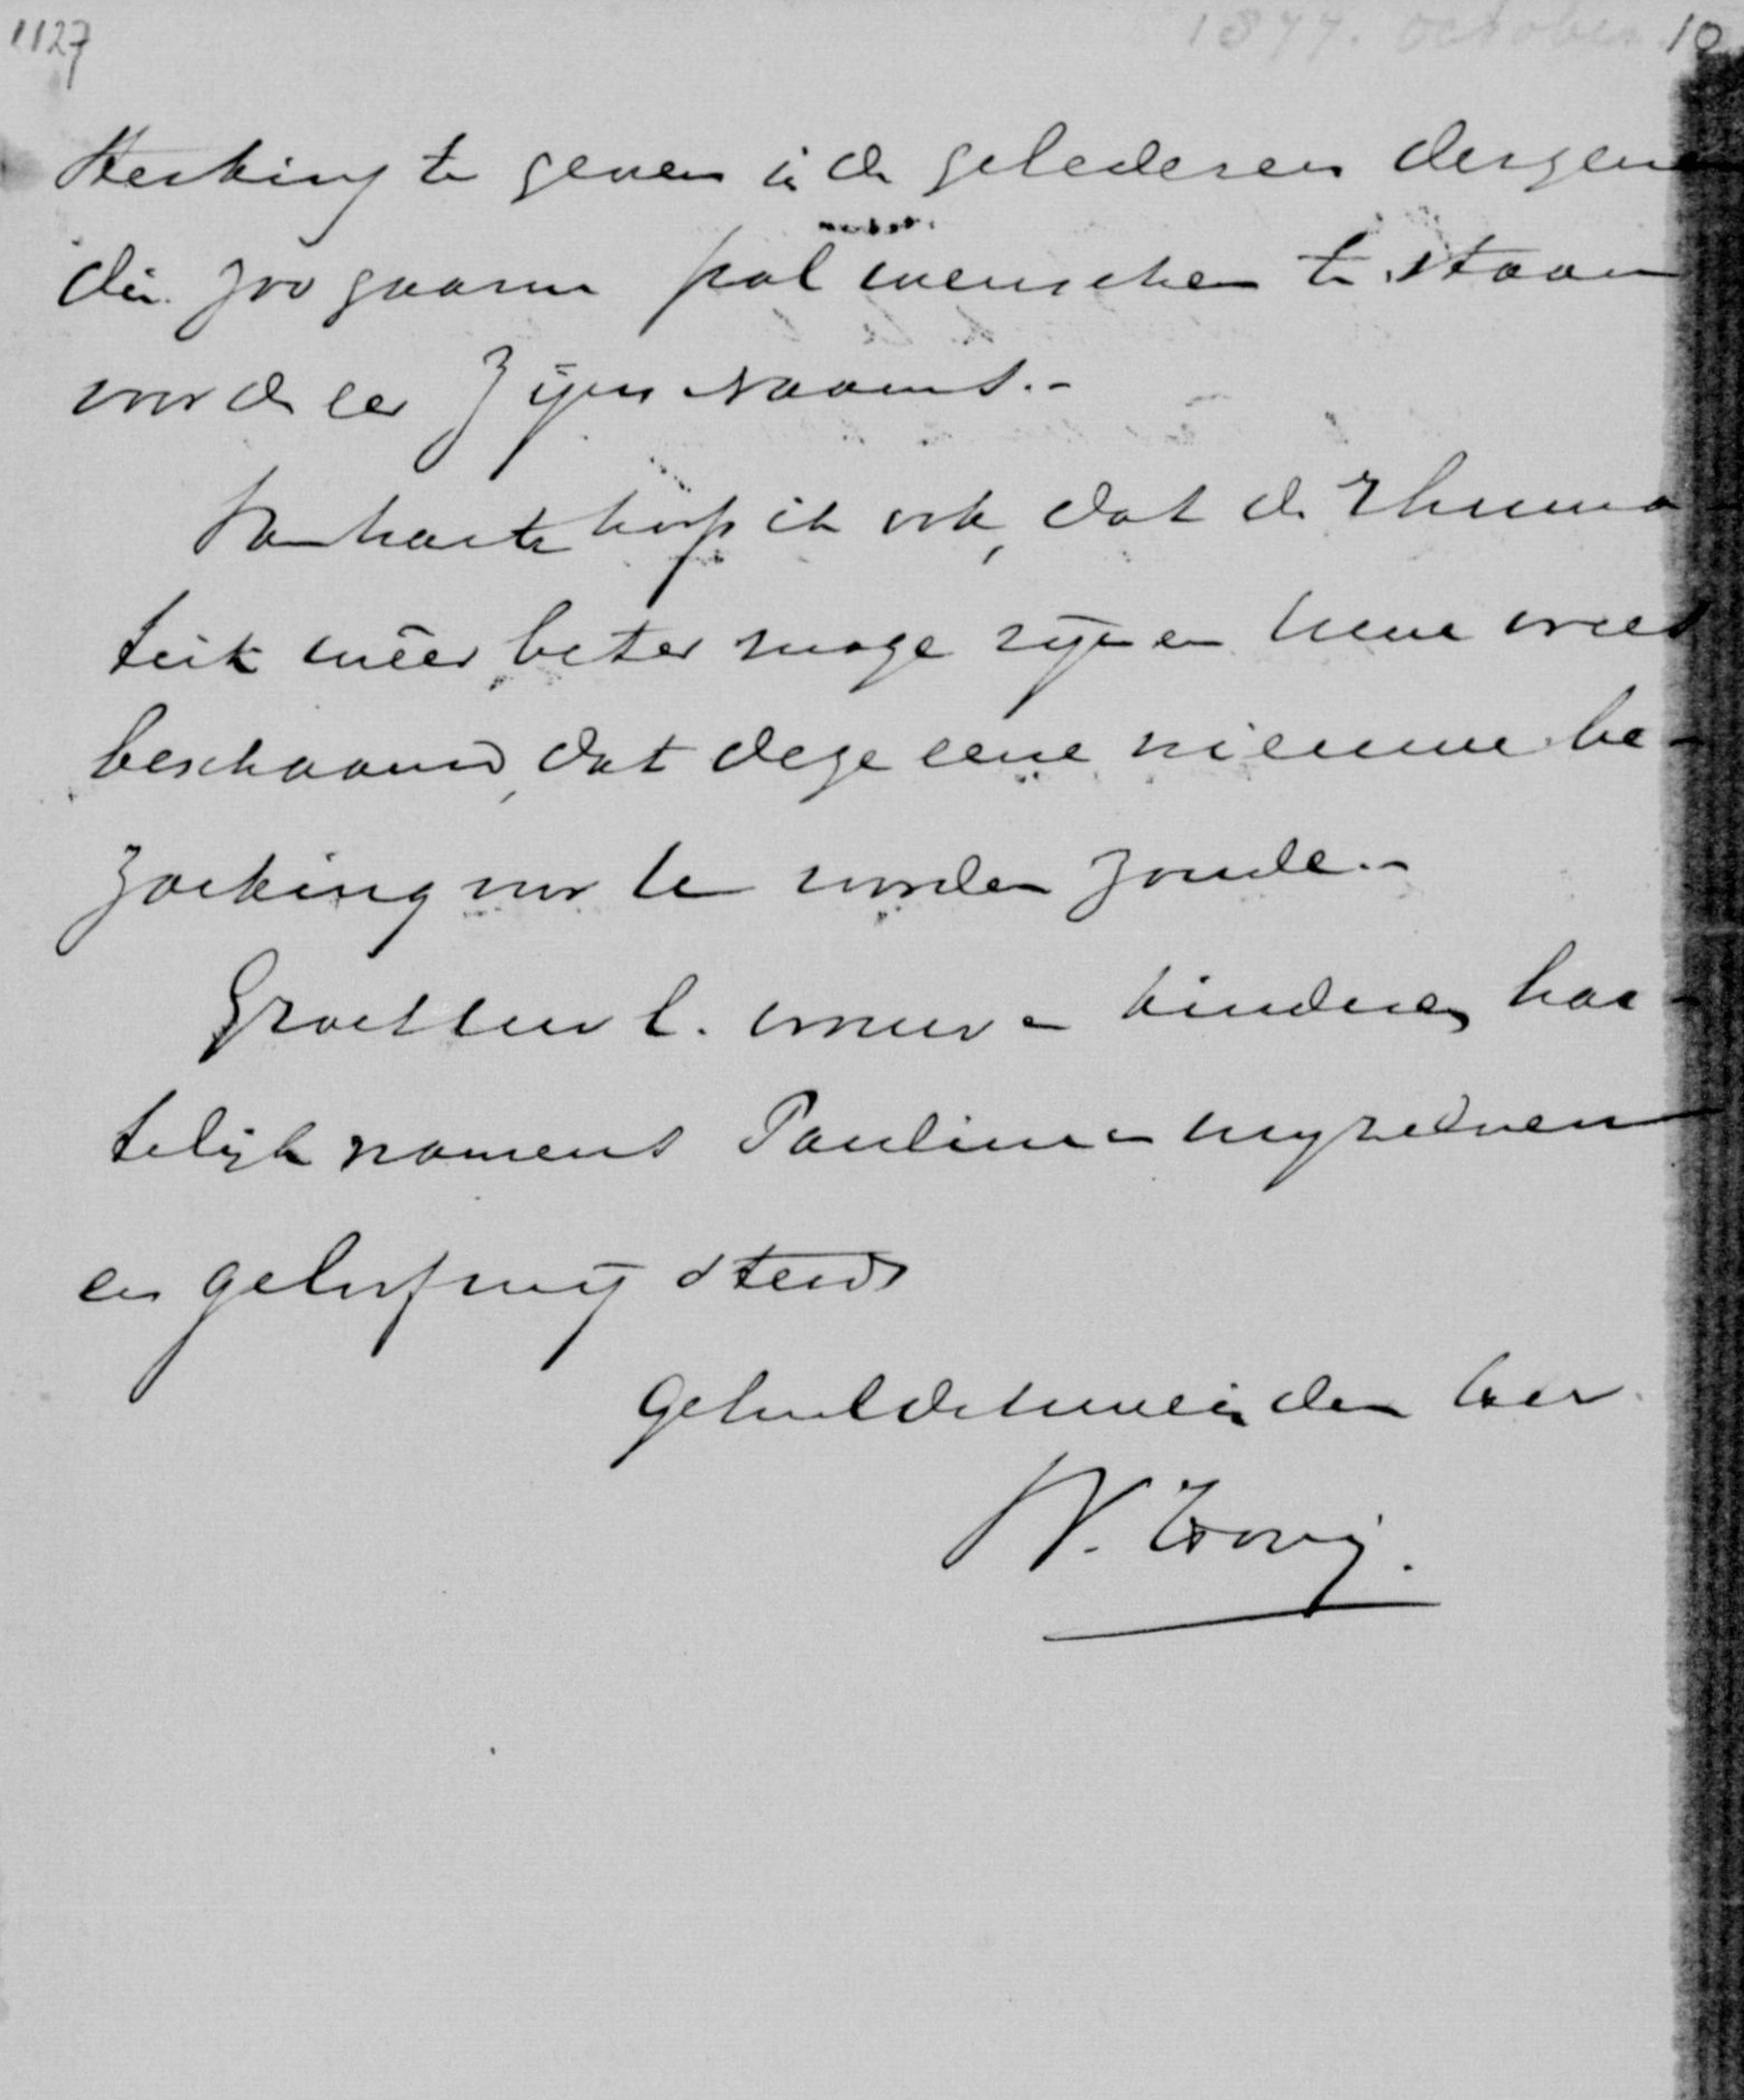 1127
1877. October 10
sterking te geven in de gelederen dergene
die zoo gaarne pal wenschen te staan
voor de eer Zijns Naams.-
Van harte hoop ik ook, dat de Rheuma
tiek weer beter moge zijn en Uwe vrees
beschaamd, dat deze eene nieuwe be-
zoeking voor U worden zoude.-
Groet Uwe l. vrouw en kinderen har-
telijk namens Pauline en mij zelven
en geloof mij steeds
geheel de Uwe in den Heer
W. Hovy.